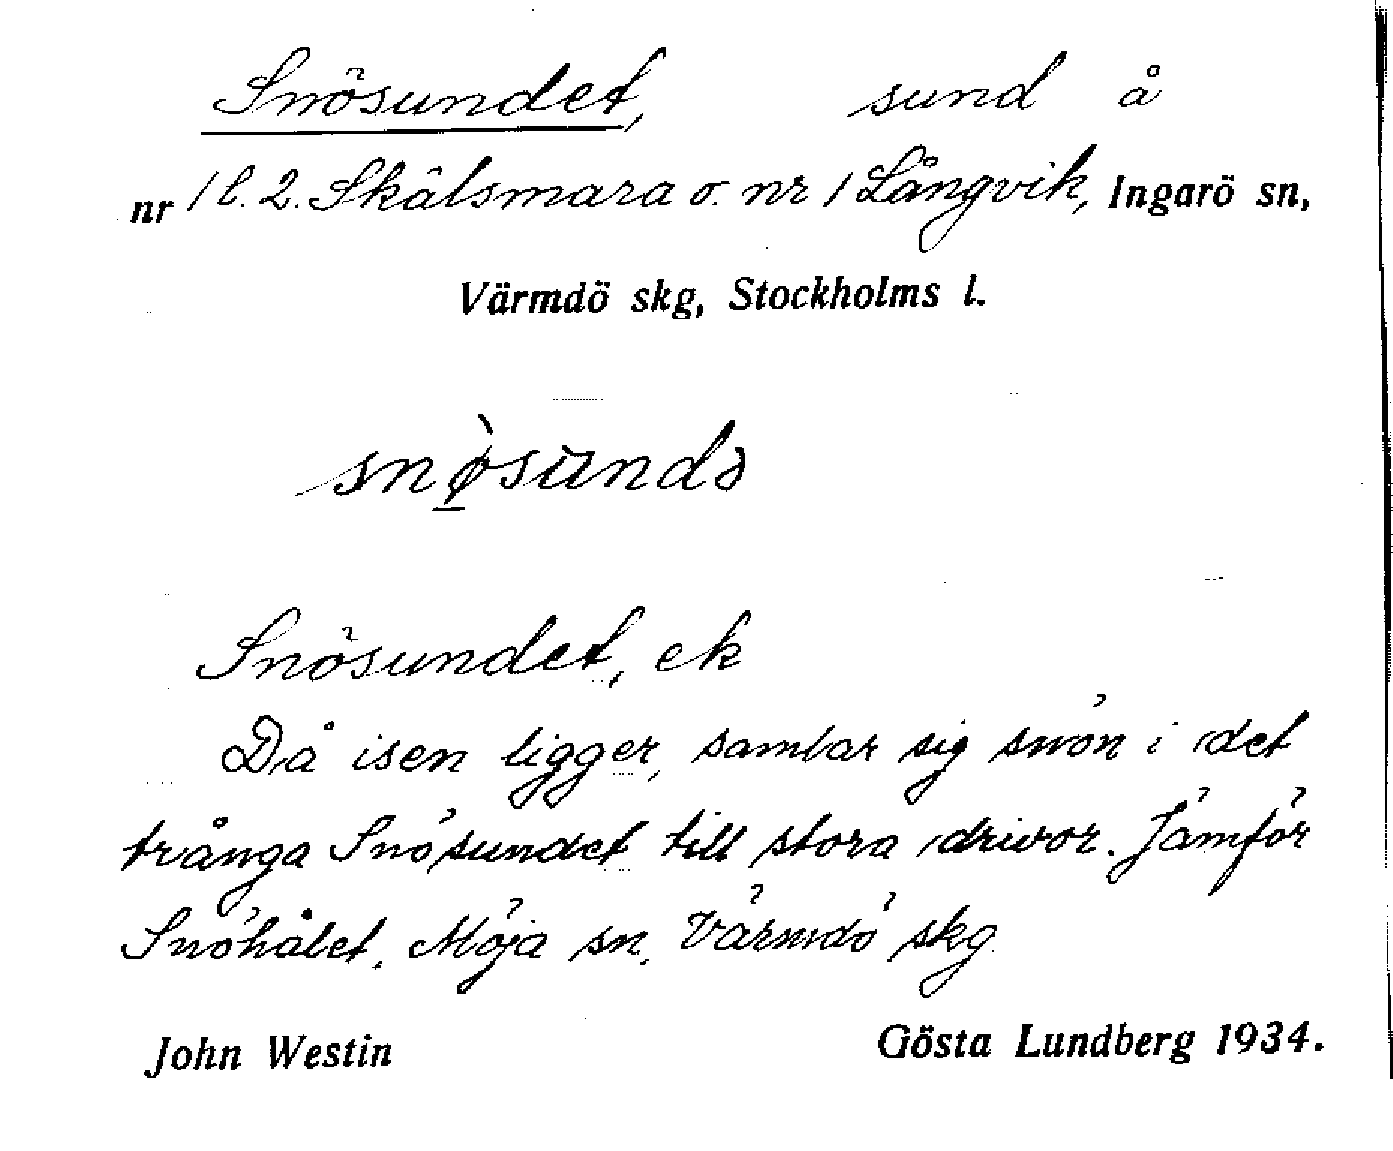 Snösundet, sund å
nr 1 l. 2. Skålsmara o. nr 1 Långvik, Ingarö sn,
Värmdö skg, Stockholms l.
snø̀sundə
Snösundet, ek
Då isen ligger, samlar sig snön i det
trånga Snösundet till stora drivor. Jämför
Snöhålet, Möja sn, Värmdö skg.
John Westin Gösta Lundberg 1934.